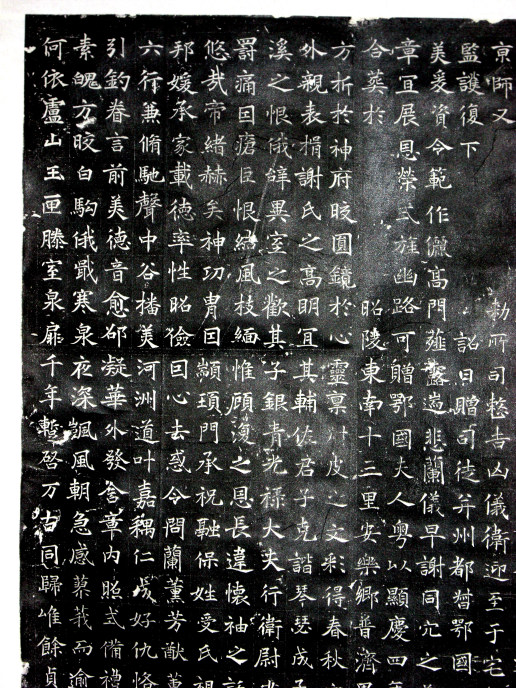 京師又 勑所司整吉凶儀衛迎至于宅
監護復下 詔曰贈司徒并州都督鄂國
美爰資令範作儷高門薤露遄悲蘭儀早謝同穴之
章宜展恩榮式旌幽路可贈鄂國夫人粤以顯慶四年
合葬於 昭陵東南十三里安樂鄉普濟
方折於神府晈圓鏡於心靈禀 皮之文彩得春秋
外親表楷謝氏之高明宜其輔佐君子克諧琴瑟成子
溪之恨俄辞異室之歡其子銀青光禄大夫行衛尉少
罸痛因瘡巨恨結風枝緬惟顧復之恩長違懷袖之
悠哉帝緒赫矣神功胄因顓頊門承祝融保姓受氏
邦媛承家載德率性昭儉因心去惑令問蘭薰芳猷
六行兼脩馳聲中谷播美河洲道叶嘉耦仁成好仇恪
引釣眷言前美德音愈邵凝華外發含章内照式備禮
素魄方晈白駒俄戢寒泉夜深飋風朝急感蓼莪而逾
何依盧山玉匣滕室泉扉千年蹔啓万古同歸惟餘貞